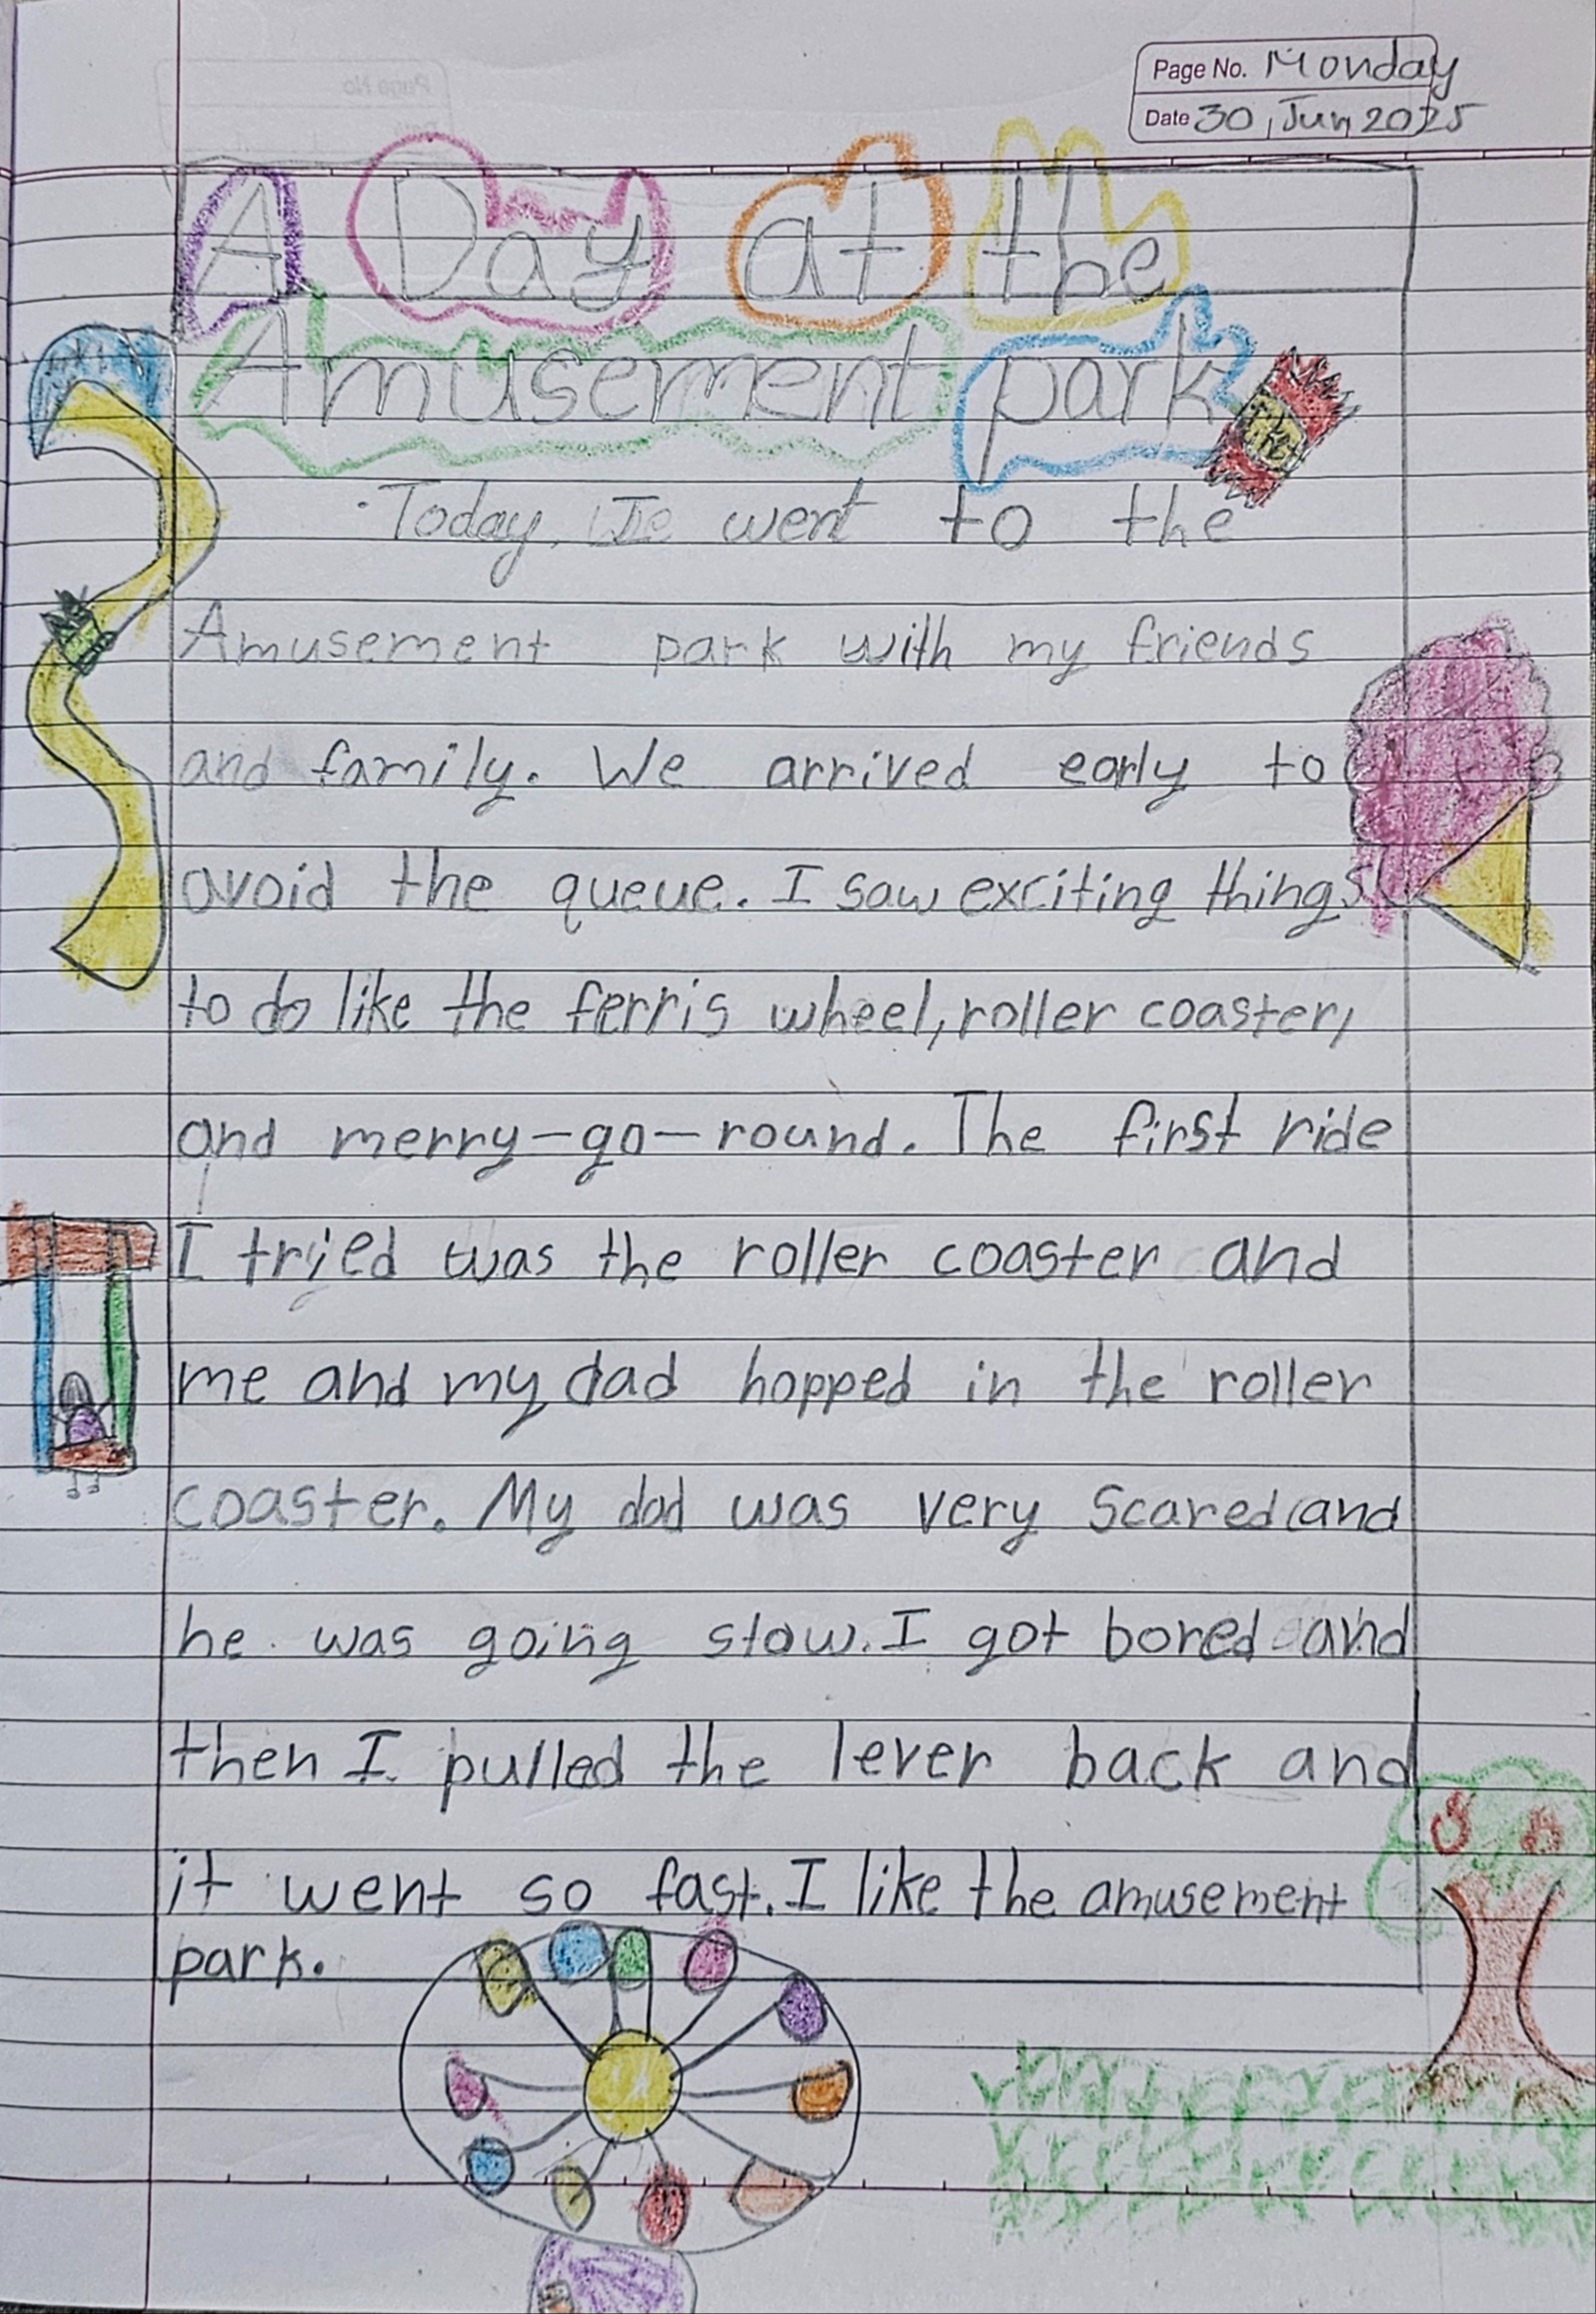 Page No. Monday
Date 30, Jun, 2025
A Day at the
Amusement park
Today, We went to the
Amusement park with my friends
and family. We arrived early to
avoid the queue. I saw exciting things
to do like the ferris wheel, roller coaster,
and merry-go-round. The first ride
I tried was the roller coaster and
me and my dad hopped in the roller
coaster. My dad was very scared and
he was going slow. I got bored and
then I pulled the lever back and
it went so fast. I like the amusement
park.